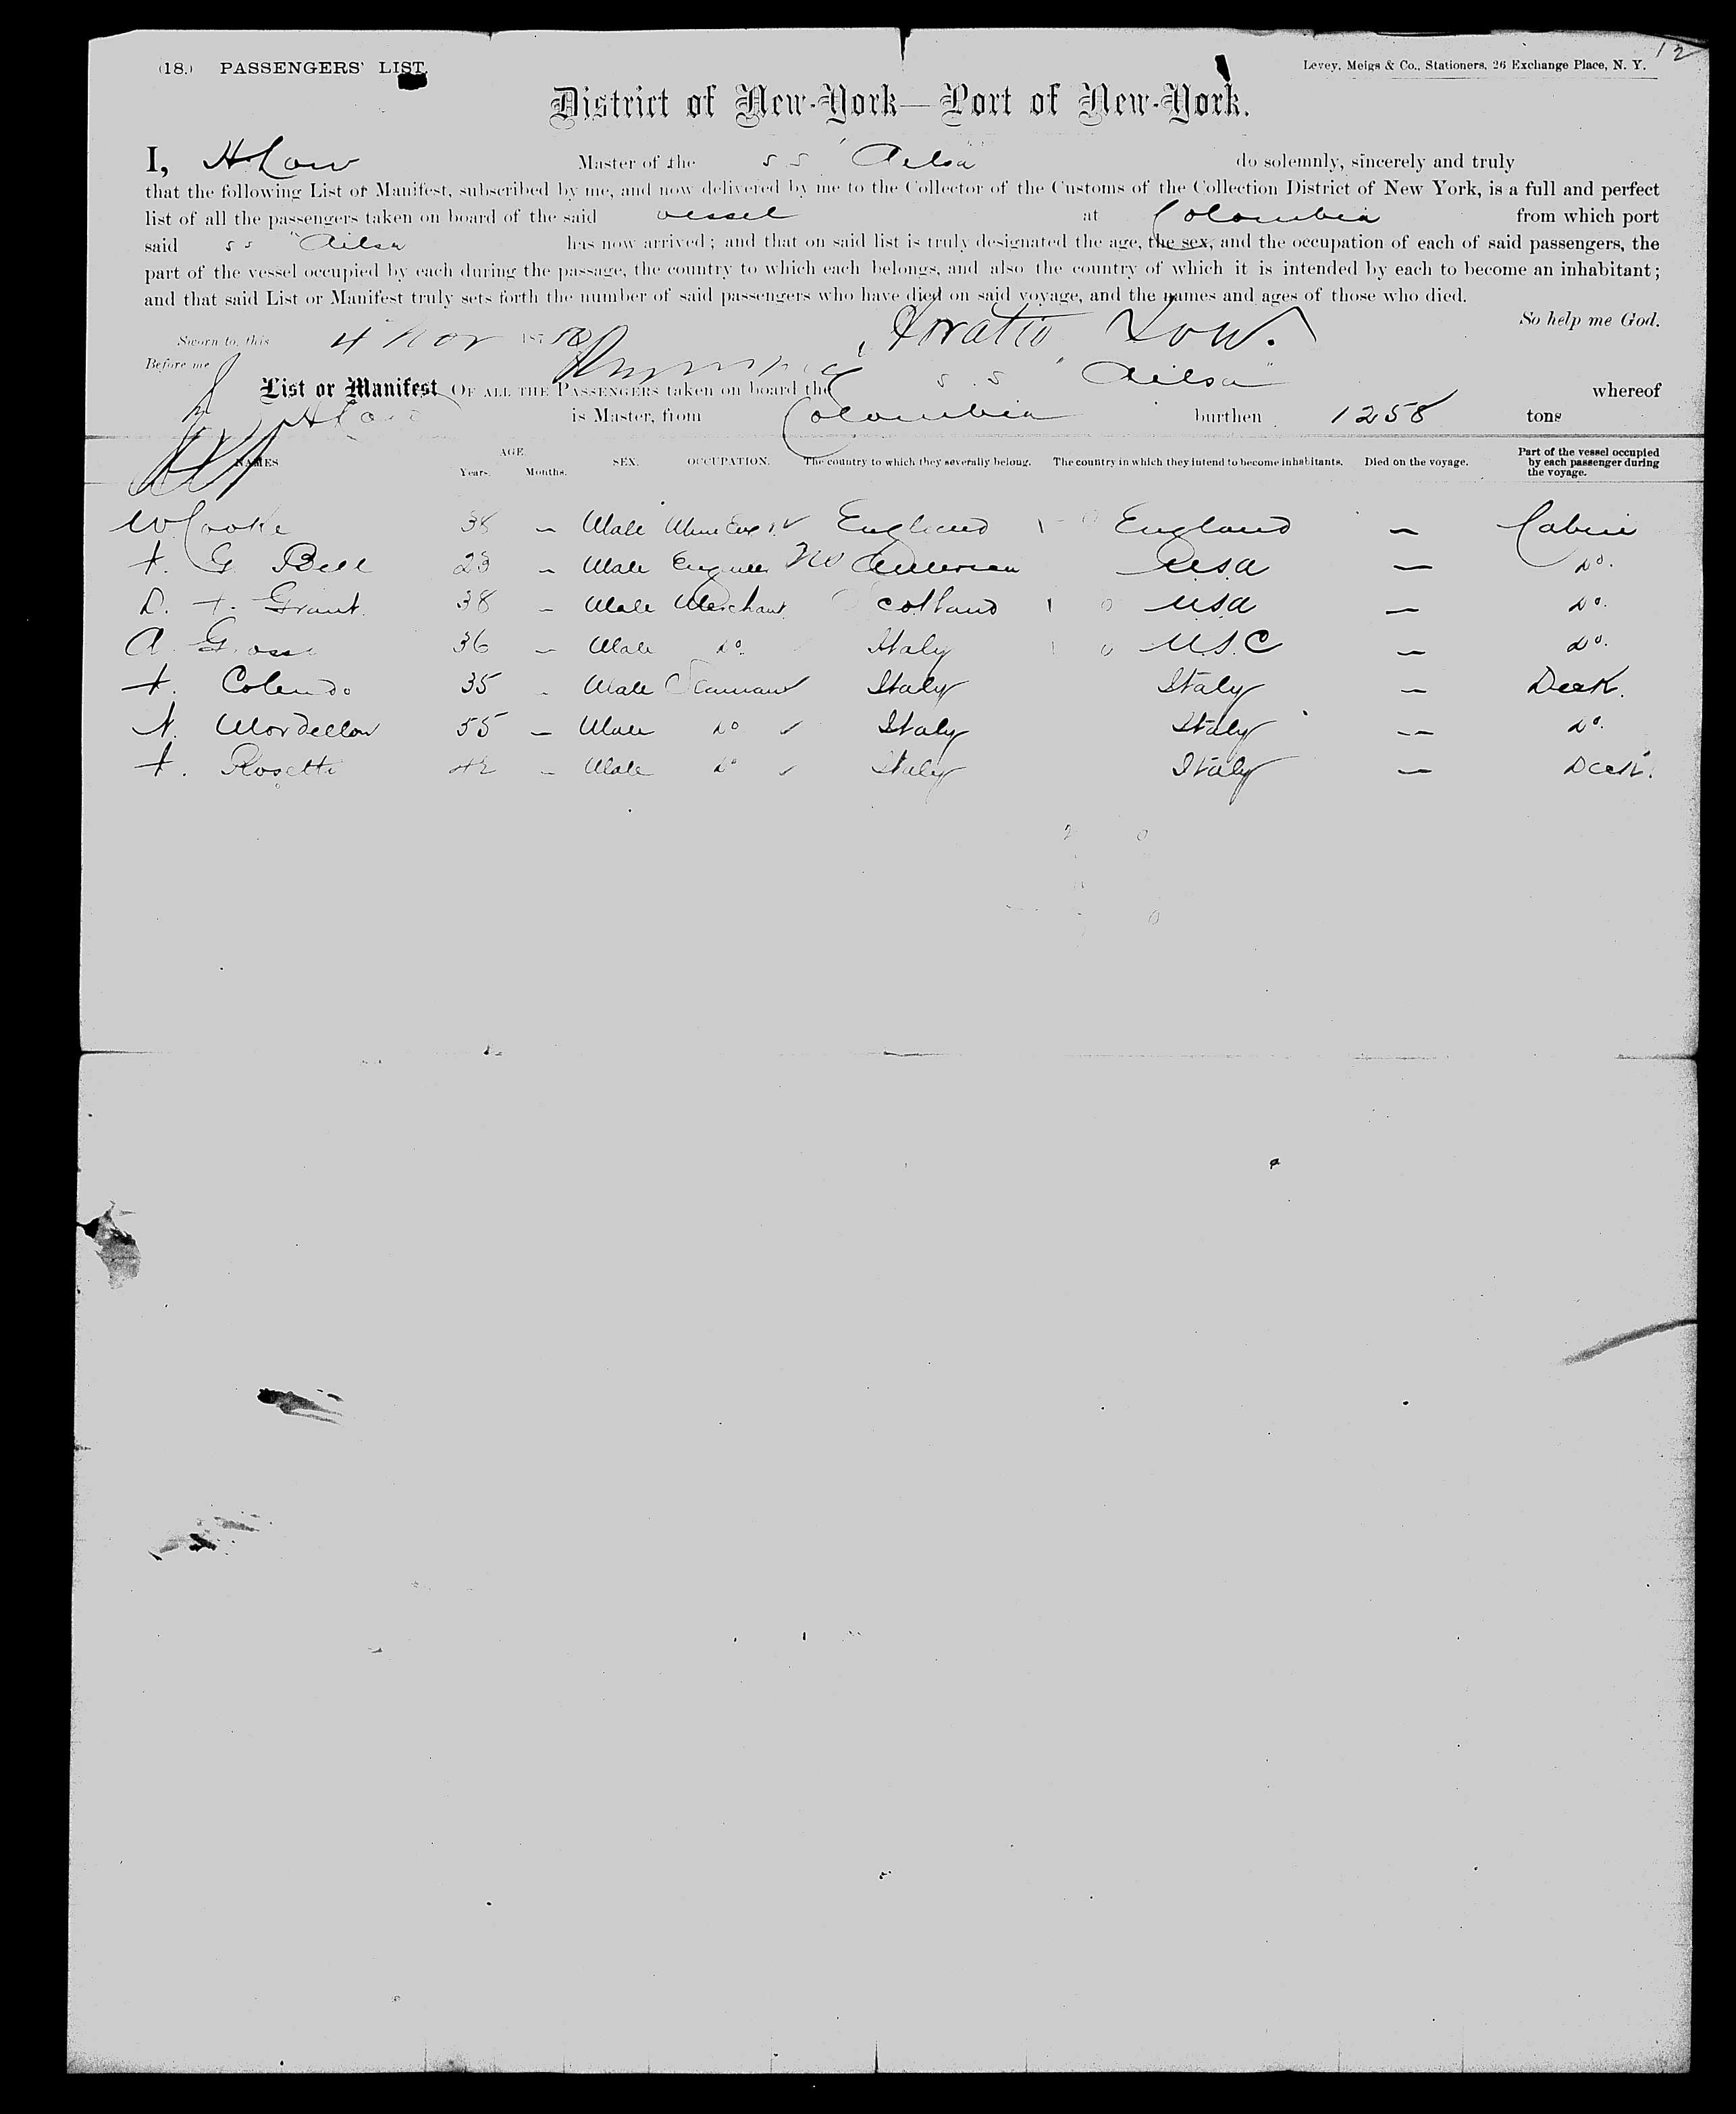 (18.) PASSENGERS' LIST. Levey, Meigs & Co., Stationers, 26 Exchange Place, N. Y. 12
District of New-York—Port of New-York.
I, H Low Master of the SS "Ailsa" do solemnly, sincerely and truly
that the following List or Manifest, subscribed by me, and now delivered by me to the Collector of the Customs of the Collection District of New York, is a full and perfect
list of all the passengers taken on board of the said vessel at Colombia from which port
said SS "Ailsa has now arrived; and that on said list is truly designated the age, the sex, and the occupation of each of said passengers, the
part of the vessel occupied by each during the passage, the country to which each belongs, and also the country of which it is intended by each to become an inhabitant;
and that said List or Manifest truly sets forth the number of said passengers who have died on said voyage, and the names and ages of those who died.
So help me God.
Sworn to, this 4 Nov 187 Horatio Low.
Before me
List or Manifest OF ALL THE PASSENGERS taken on board the S.S "Ailsa" whereof
H Low is Master, from Colombia burthen 1258 tons
NAMES AGE. Years. Months. SEX. OCCUPATION. The country to which they severally belong. The country in which they intend to become inhabitants. Died on the voyage. Part of the vessel occupied by each passenger during the voyage.
W Cooke 38 – Male England England – Cabin
G Bell 23 – Male Engineer American USA – Do.
D. Grant 38 – Male Merchant Scotland USA – Do.
A 36 – Male Do. Italy – Do.
35 – Male Seaman Italy Italy – Deck.
55 – Male Do Italy Italy – Do.
Rosetti 42 – Male Do Italy Italy – Deck.